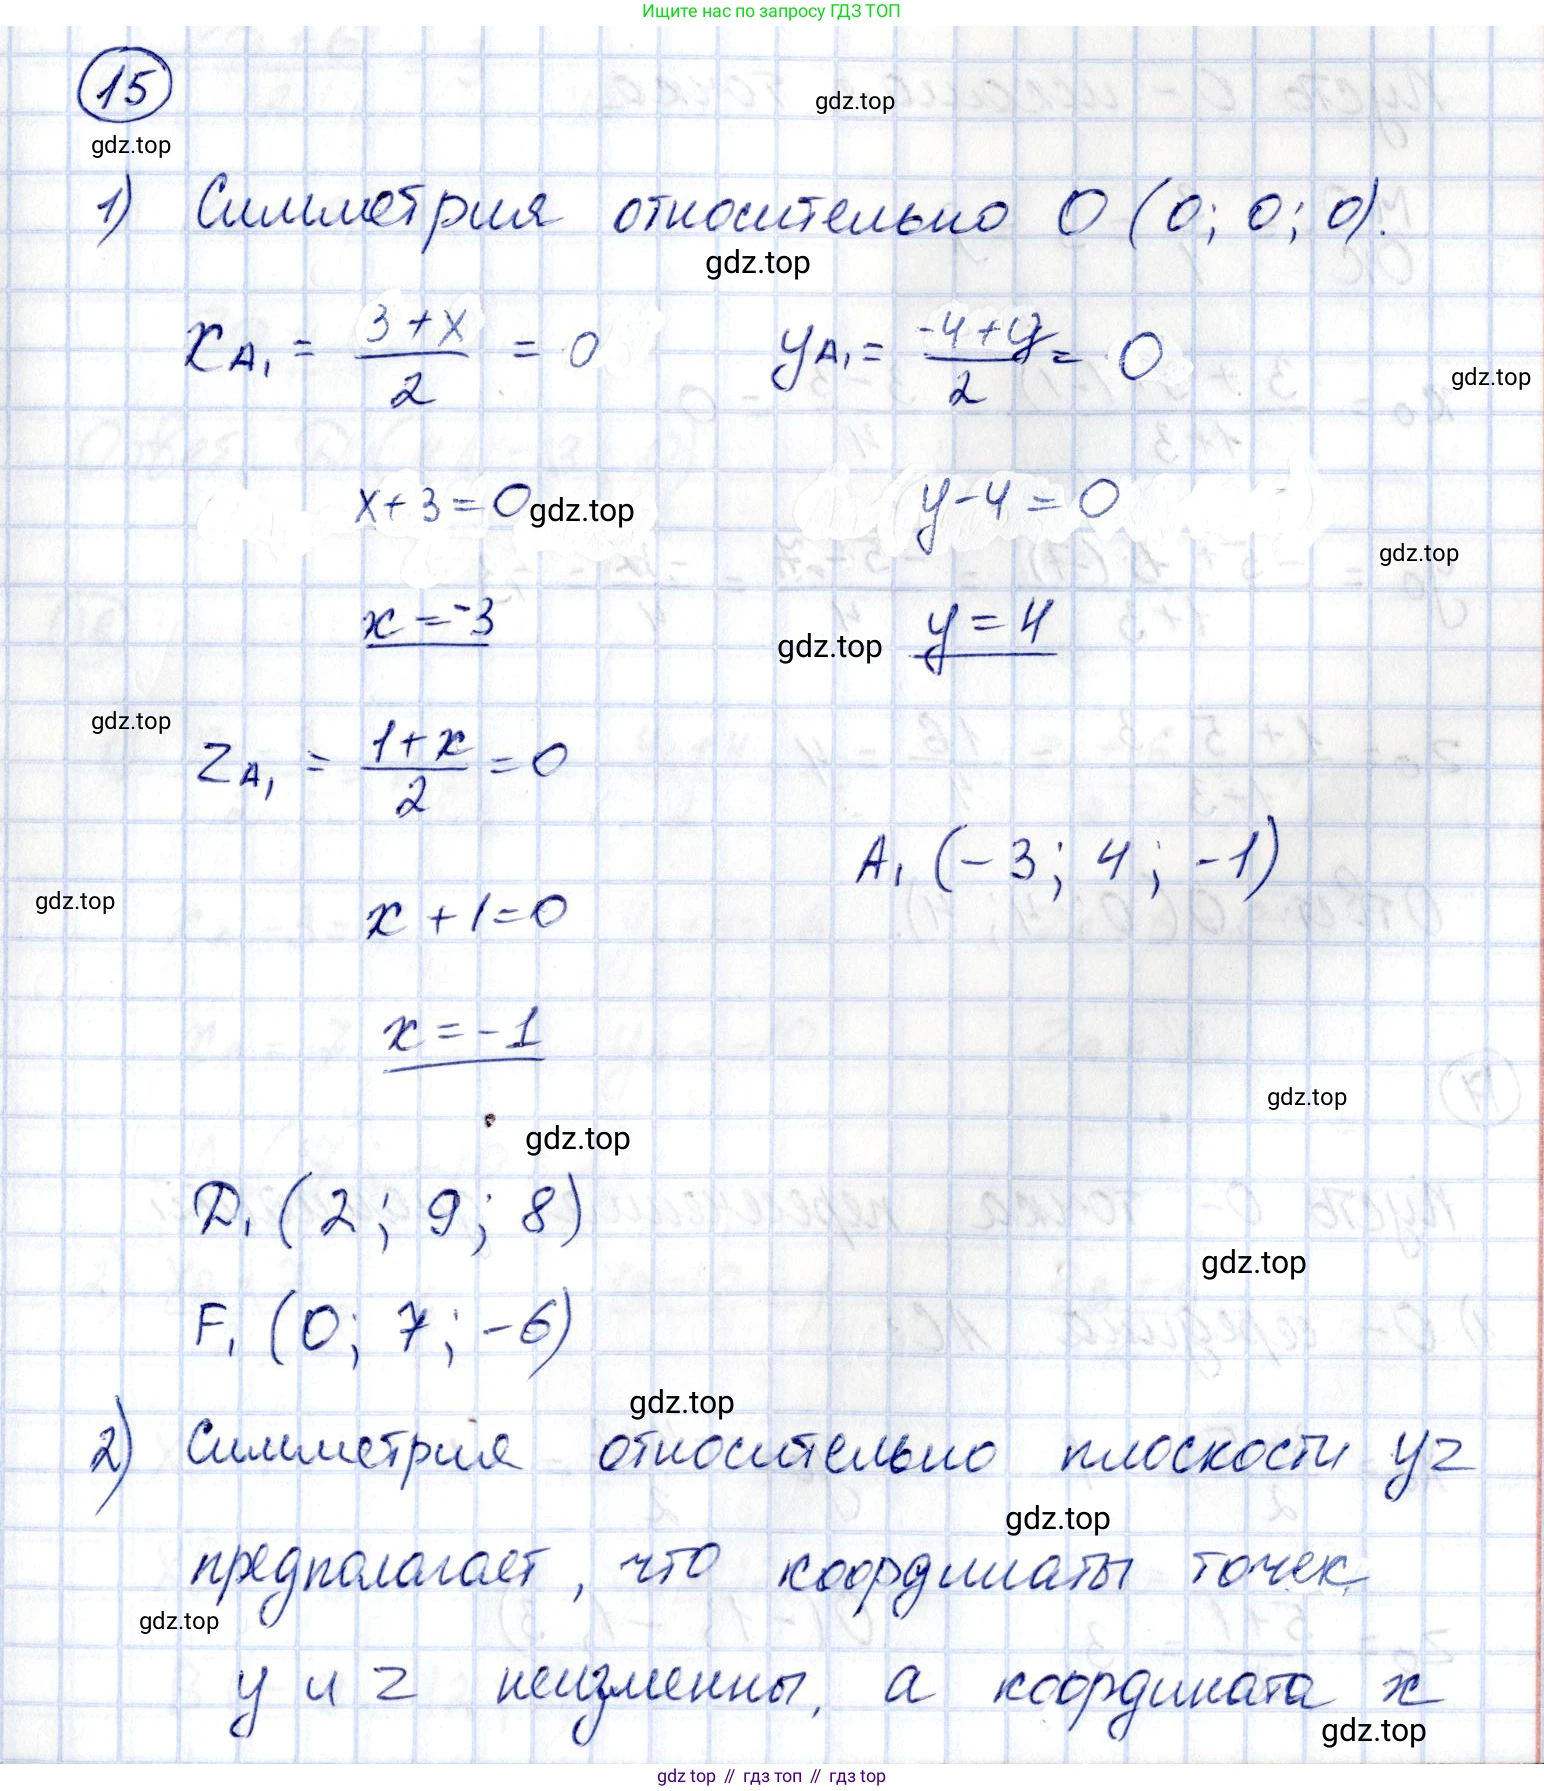 Ищите нас по запросу ГДЗ ТОП
15
gdz.top
gdz.top
1) Симметрия относительно O (0; 0; 0).
gdz.top
x_A₁ = (3+x)/2 = 0   y_A₁ = (-4+y)/2 = 0
gdz.top
x+3=0 gdz.top   y-4=0
gdz.top
x=-3   gdz.top   y=4
gdz.top
z_A₁ = (1+x)/2 = 0
A₁ (-3; 4; -1)
gdz.top
x+1=0
x=-1
gdz.top
gdz.top
D₁ (2; 9; 8)
gdz.top
F₁ (0; 7; -6)
gdz.top
2) Симметрия относительно плоскости yz
gdz.top
предполагает, что координаты точек
gdz.top
y и z неизменны, а координата x
gdz.top
gdz top // гдз топ // гдз top